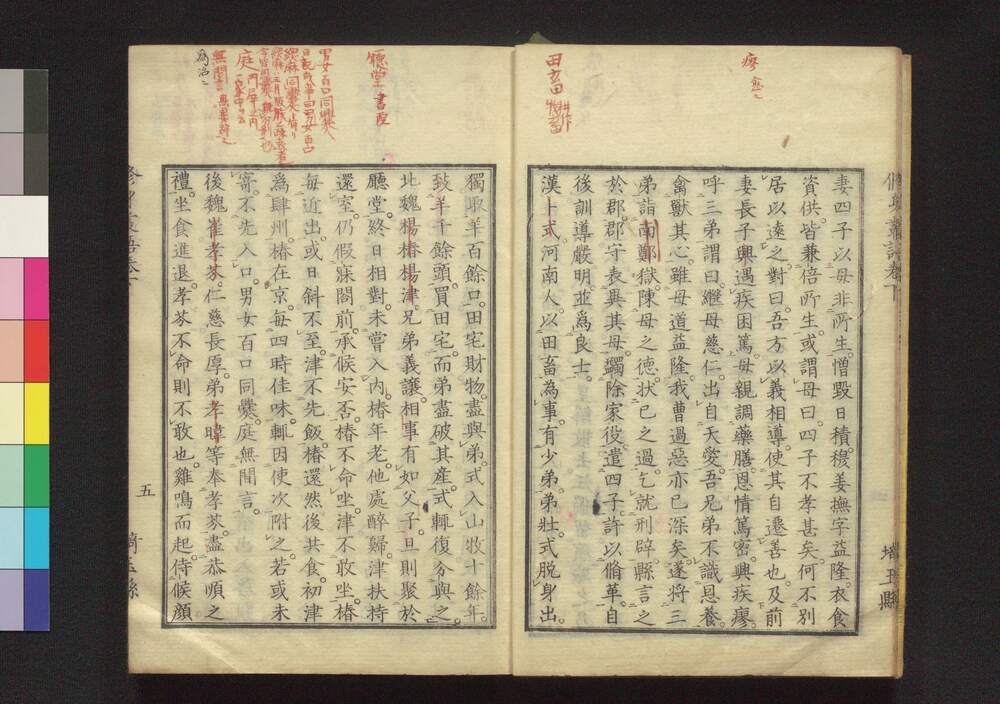 瘳 愈也
田畜 耕作 牧畜
妻四子以母非所生憎毀日積穆姜撫字益隆衣食
資供皆兼倍所生或謂母曰四子不孝甚矣何不別
居以遠之對曰吾方以義相導使其自遷善也及前
妻長子興遇疾困篤母親調藥膳恩情篤密興疾瘳
呼三弟謂曰繼母慈仁出自天愛吾兄弟不識恩養
禽獸其心雖母道益隆我曹過惡亦已深矣遂將三
弟詣南鄭獄陳母之德狀已之過乞就刑辟縣言之
於郡郡守表異其母蠲除家役遣四子許以脩革自
後訓導嚴明並爲良士
漢卜式河南人以田畜為事有少弟弟壯式脫身出
廳堂 書處
男女百口同爨
緦麻同爨
庭
無間言
獨取羊百餘口田宅財物盡與弟式入山牧十餘年
致羊千餘頭買田宅而弟盡破其產式輒復分與之
北魏楊椿楊津兄弟義讓相事有如父子旦則聚於
廳堂終日相對未嘗入內椿年老他處醉歸津扶持
還室仍假寐閤前承候安否椿不命坐津不敢坐椿
每近出或日斜不至津不先飯椿還然後共食初津
為肆州椿在京每四時佳味輒因使次附之若或未
寄不先入口男女百口同爨庭無間言
後魏崔孝芬仁慈長厚弟孝暐等奉孝芬盡恭順之
禮坐食進退孝芬不命則不敢也雞鳴而起侍候顏
五